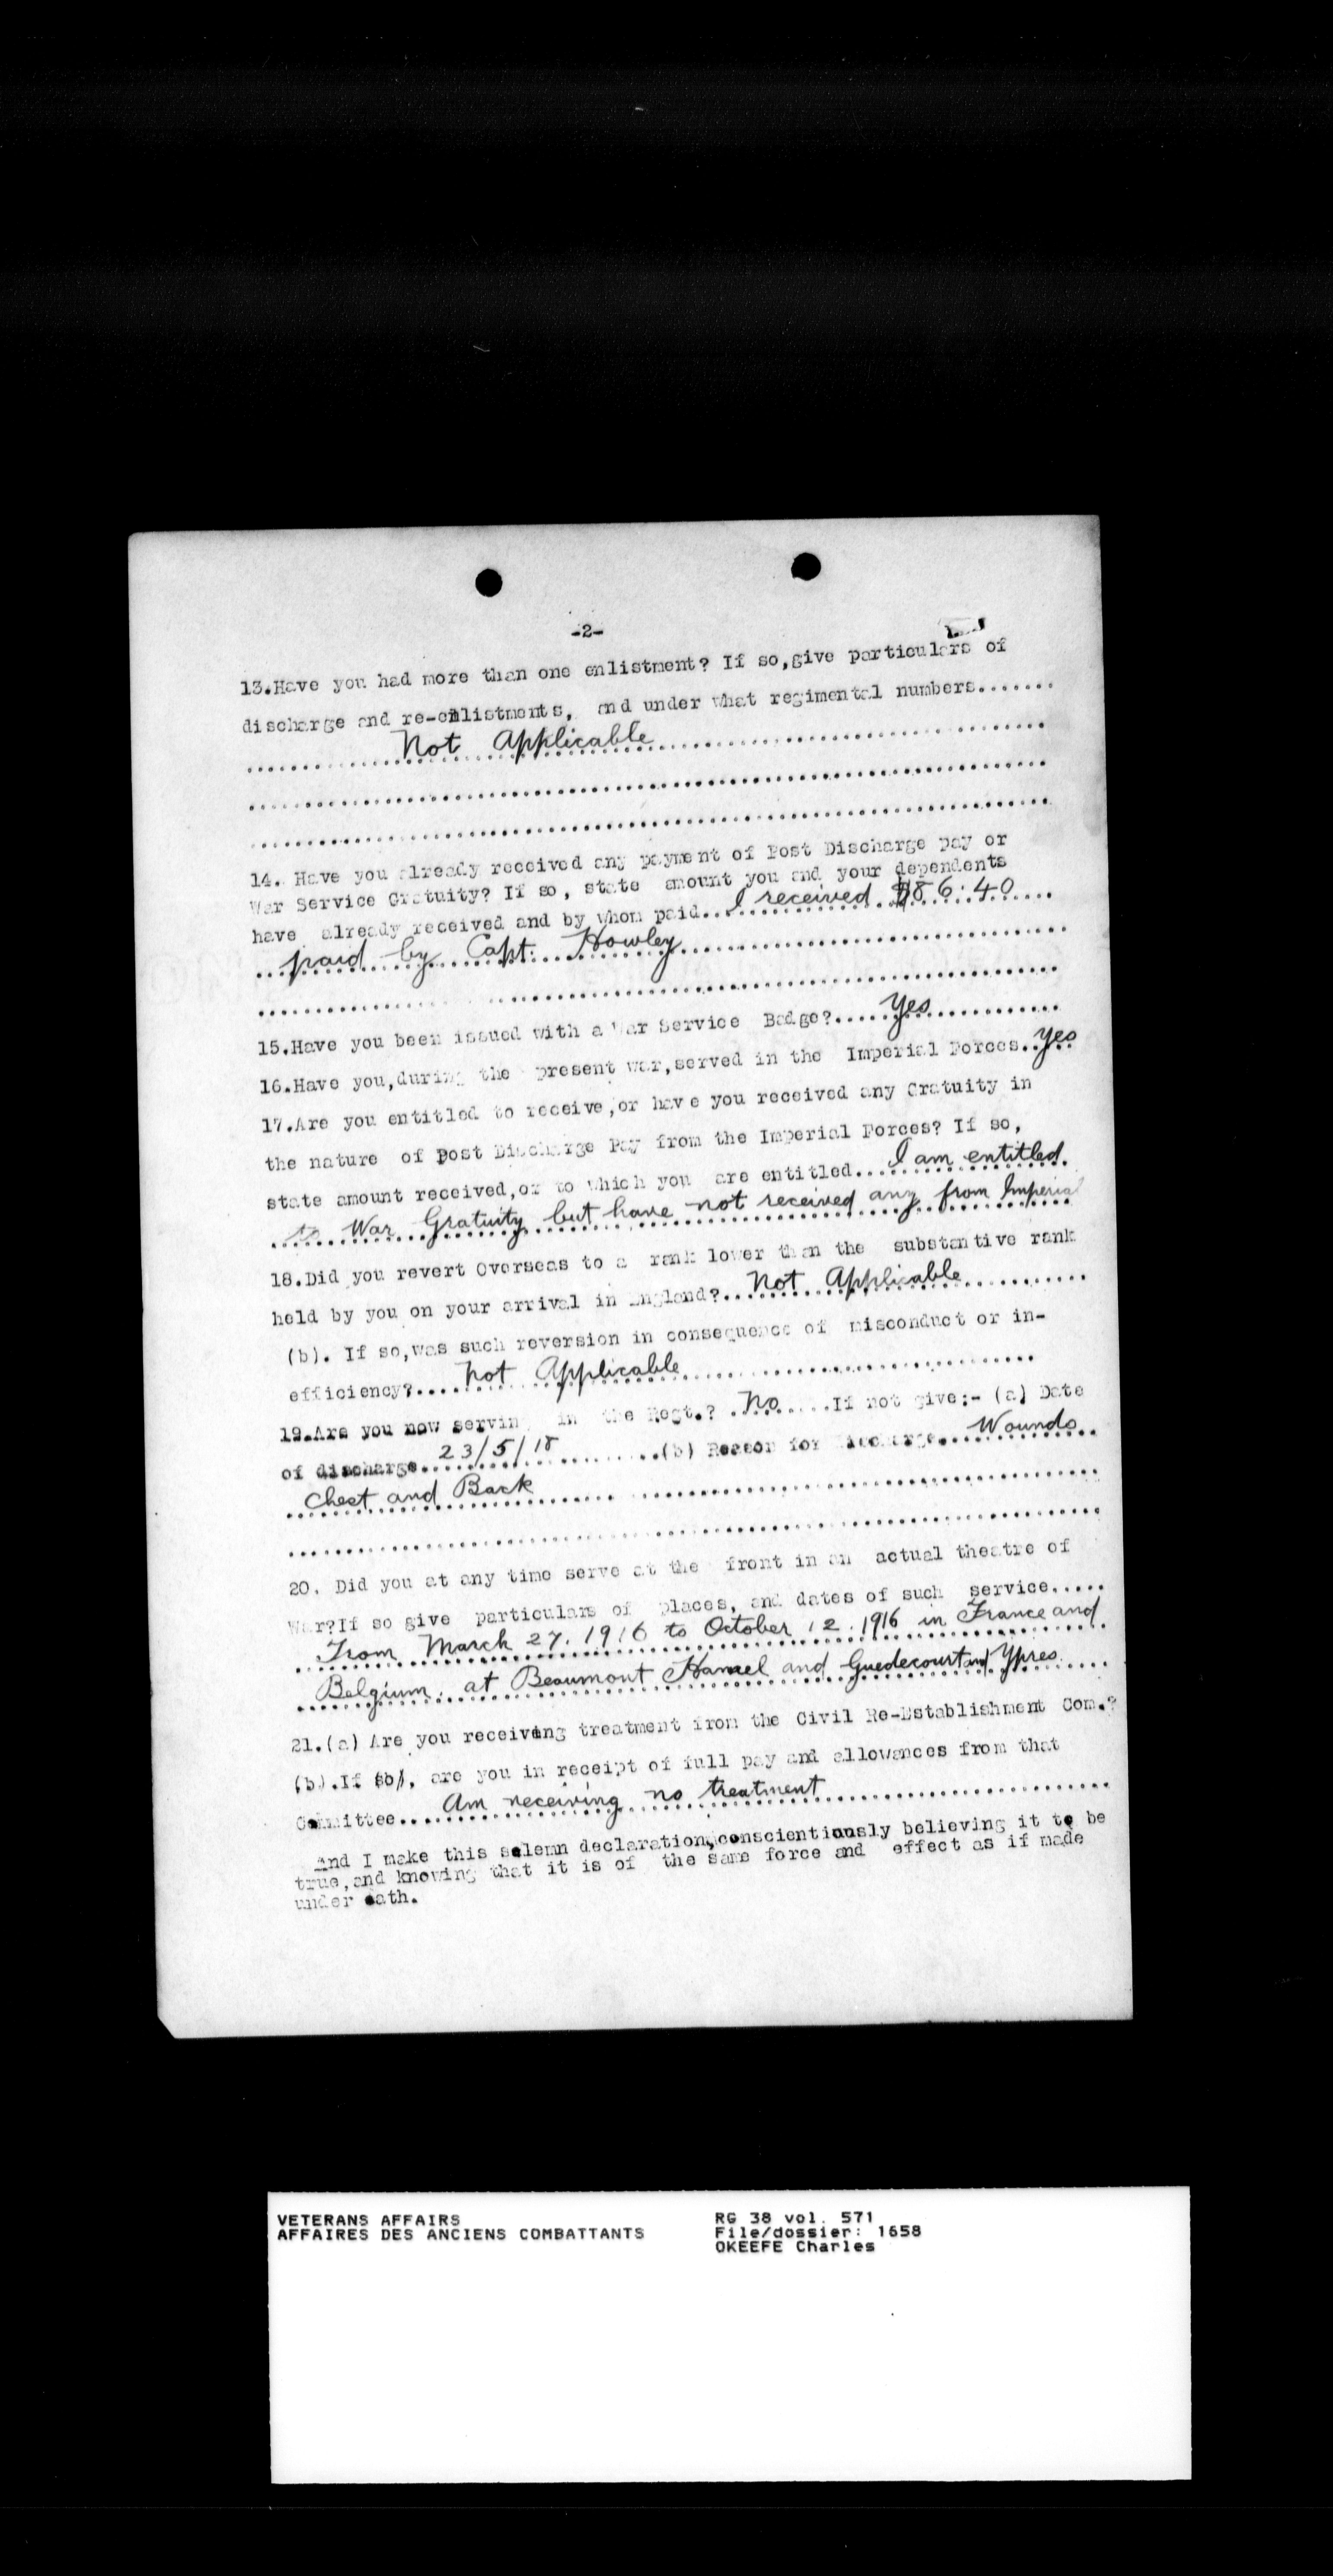 -2-
13.Have you had more than one enlistment? If so,give particulars of
discharge and re-enlistments, and under what regimental numbers.......
Not Applicable
14. Have you already received any payment of Post Discharge pay or
War Service Gratuity? If so, state amount you and your dependents
have already received and by whom paid...I received $86.40....
paid by Capt. Howley
15.Have you been issued with a War Service Badge?.....Yes
16.Have you,during the present war,served in the Imperial Forces..Yes
17.Are you entitled to receive,or have you received any Gratuity in
the nature of Post Discharge Pay from the Imperial Forces? If so,
state amount received,or to which you are entitled...I am entitled.
to War Gratuity but have not received any from Imperial
18.Did you revert Overseas to a rank lower than the substantive rank
held by you on your arrival in England?..Not Applicable
(b). If so,was such reversion in consequence of misconduct or in-
efficiency?....Not Applicable
19.Are you now serving in the Regt.? .No.....If not give:- (a) Date
of discharge..23/5/18........(b) Reason for discharge..Wounds..
Chest and Back
20. Did you at any time serve at the front in an actual theatre of
War?If so give particulars of places, and dates of such service.....
From March 27. 1916 to October 12. 1916 in France and
Belgium. at Beaumont Hamel and Guedecourt and Ypres
21.(a) Are you receiving treatment from the Civil Re-Establishment Com.?
(b).If so, are you in receipt of full pay and allowances from that
Committee....Am receiving no treatment
And I make this solemn declaration,conscientiously believing it to be
true,and knowing that it is of the same force and effect as if made
under oath.
VETERANS AFFAIRS
AFFAIRES DES ANCIENS COMBATTANTS
RG 38 vol. 571
File/dossier: 1658
OKEEFE Charles